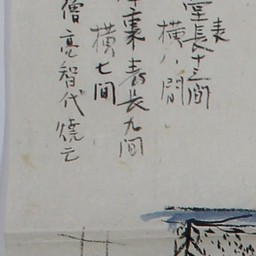 堂表長十三間
横八間
裏表長九間
横七間
僧亮智代焼云